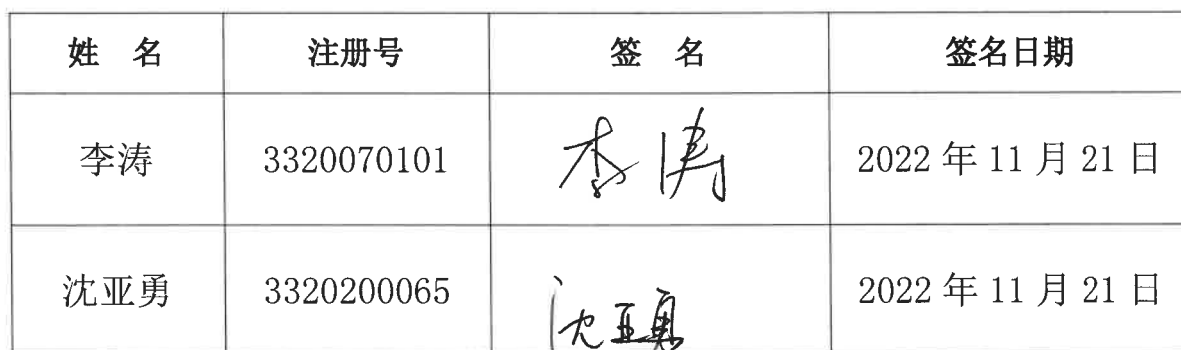 姓 名 注册号 签 名 签名日期
李涛 3320070101 李涛 2022 年 11 月 21 日
沈亚勇 3320200065 沈亚勇 2022 年 11 月 21 日